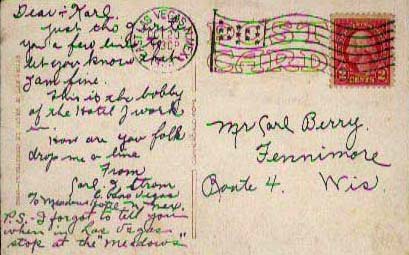 Dear Karl.
Just tho I'd
you a few lines to
let you know that
I am fine.
This is the lobby
of the Hotel I work
in.
How are you folk
drop me a line
From
Carl Strom
Las Vegas
% Meadows Hotel Nev.
P.S.- I forgot to tell you
when in Las Vegas
stop at the "Meadows"
LAS VEGAS, NEV.
2 CENTS 2
Mr Carl Berry.
Fennimore
Route 4. Wis.